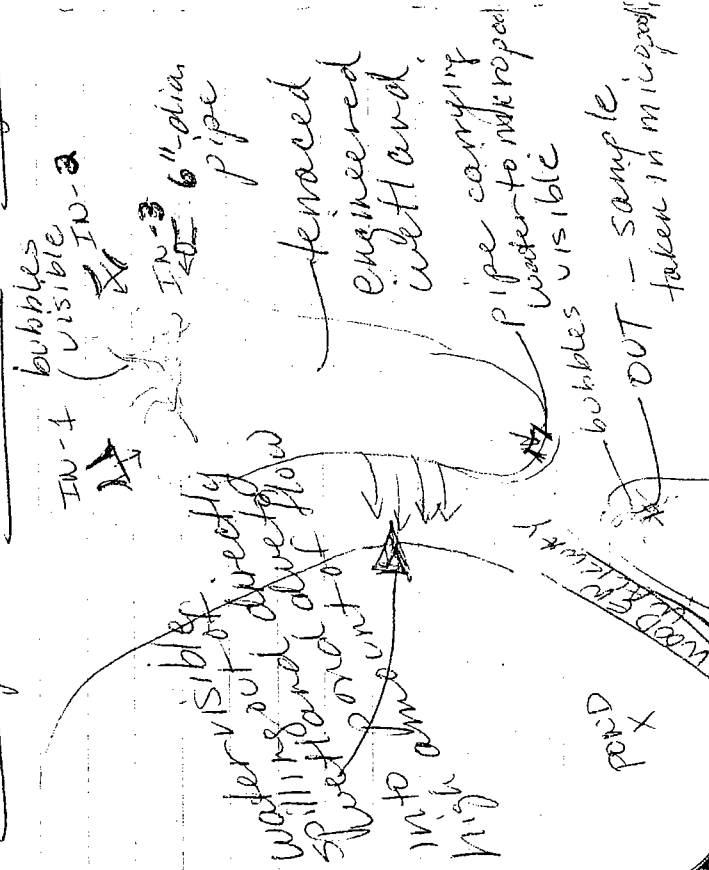 IN-1
bubbles
visible
IN-2
IN-3
6"-dia.
pipe
terraced
engineered
wetland.
pipe carrying
water to micropool
visible
bubbles
OUT - sample
taken in micropool,
water visible
spilling out directly
wetland due to
into pond
high amount of flow
POND
X
WOODEN WALKWAY